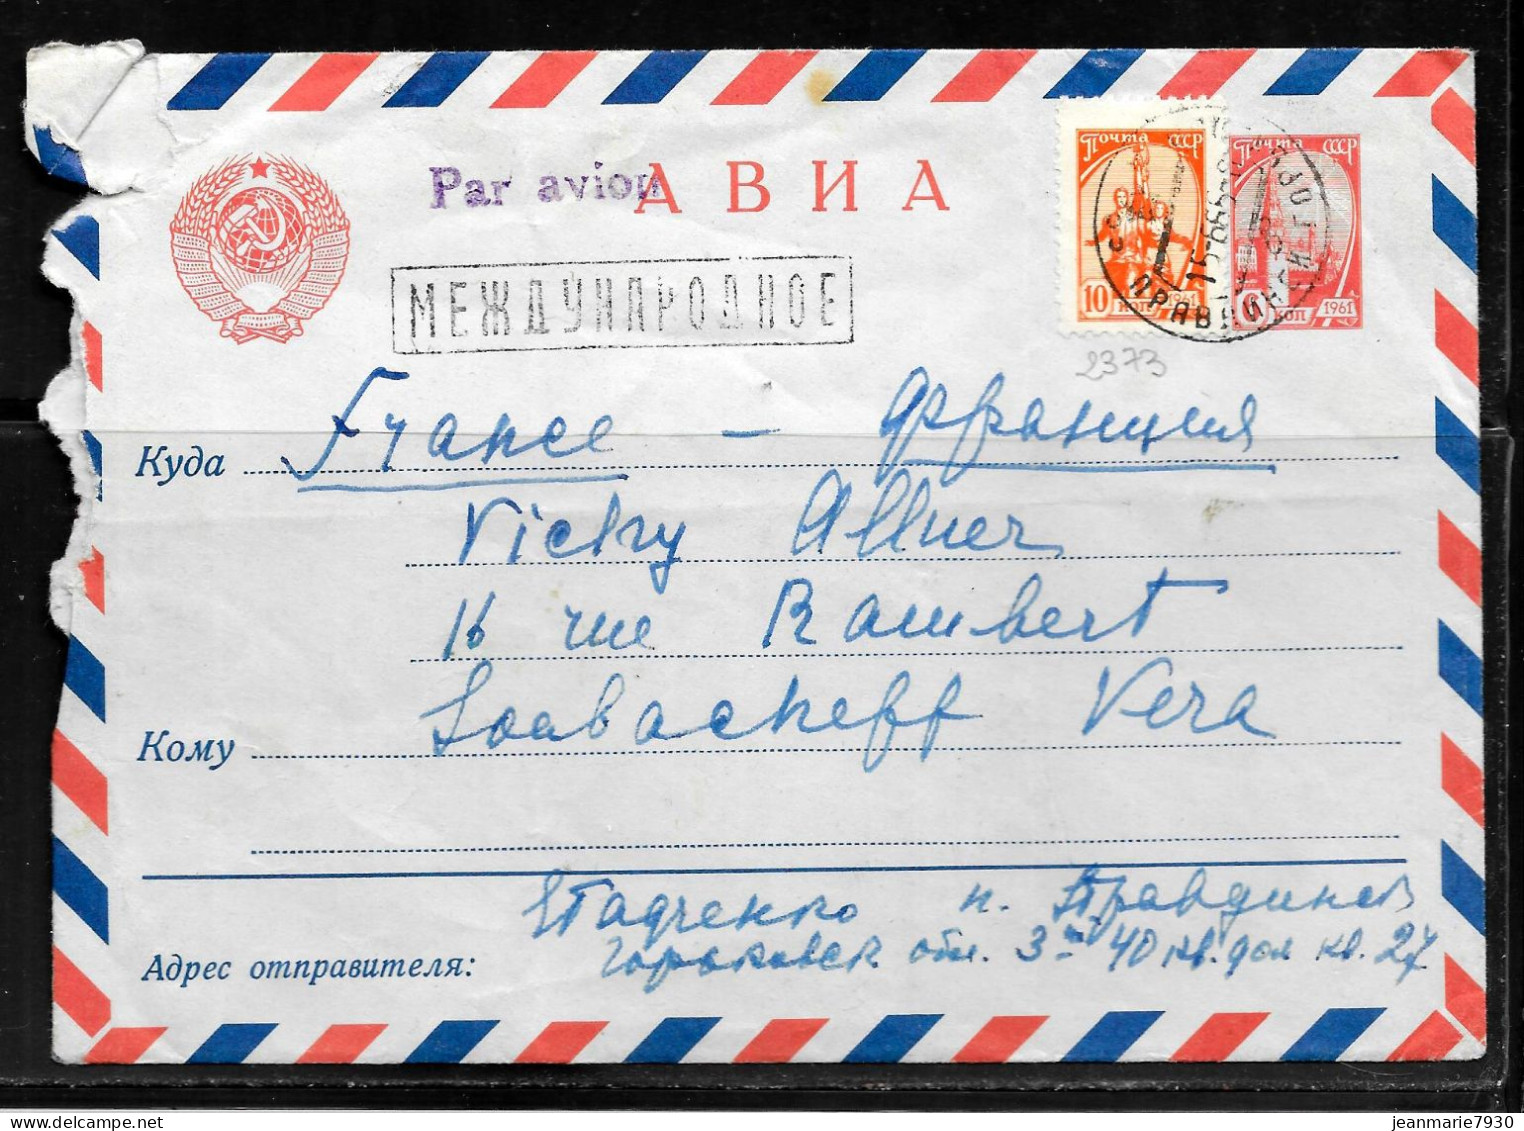 Par avion
АВИА
МЕЖДУНАРОДНОЕ
Почта СССР
10 коп 1961
Почта СССР
6 коп 1961
2373
Куда France - Франция
Vichy Allier
16 rue Rambert
Кому Soubacheff Vera
п. Правдинск
Адрес отправителя: Горьковск обл. 3й 40 кв. дом кв. 27
jeanmarie7930